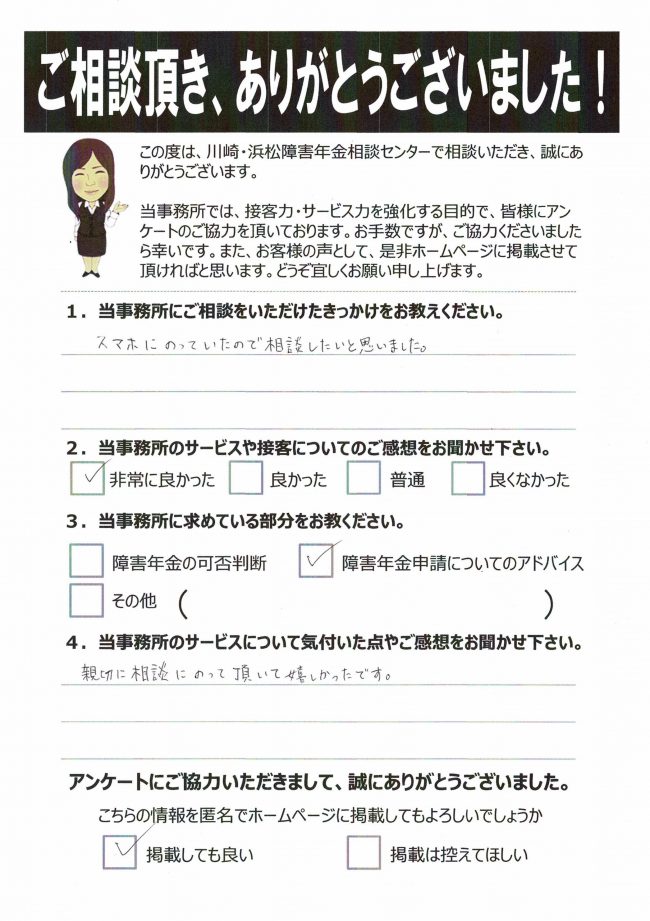 ご相談頂き、ありがとうございました！
この度は、川崎・浜松障害年金相談センターで相談いただき、誠にあ
りがとうございます。
当事務所では、接客力・サービス力を強化する目的で、皆様にアン
ケートのご協力を頂いております。お手数ですが、ご協力くださいました
ら幸いです。また、お客様の声として、是非ホームページに掲載させて
頂ければと思います。どうぞ宜しくお願い申し上げます。
1．当事務所にご相談をいただけたきっかけをお教えください。
スマホにのっていたので相談したいと思いました。
2．当事務所のサービスや接客についてのご感想をお聞かせ下さい。
非常に良かった 良かった 普通 良くなかった
3．当事務所に求めている部分をお教ください。
障害年金の可否判断 障害年金申請についてのアドバイス
その他 （ ）
4．当事務所のサービスについて気付いた点やご感想をお聞かせ下さい。
親切に相談にのって頂いて嬉しかったです。
アンケートにご協力いただきまして、誠にありがとうございました。
こちらの情報を匿名でホームページに掲載してもよろしいでしょうか
掲載しても良い 掲載は控えてほしい